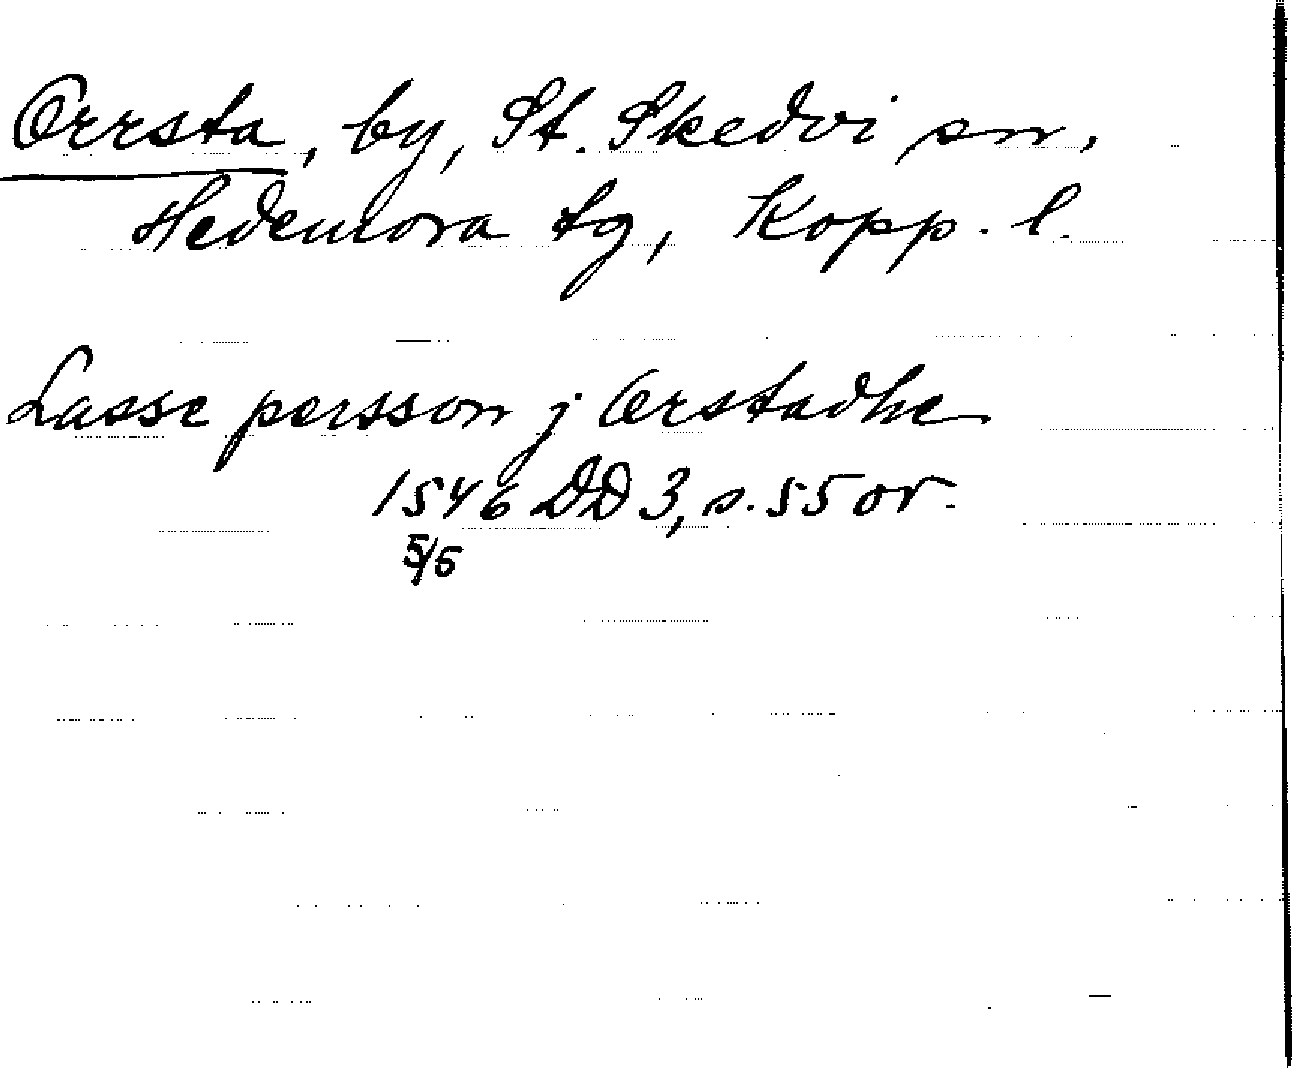 Orrsta, by, St. Skedvi sn,
Hedemora tg, Kopp. l.
Lasse persson j Orstadhe
1546 DD 3, s. 55 or.
5/5